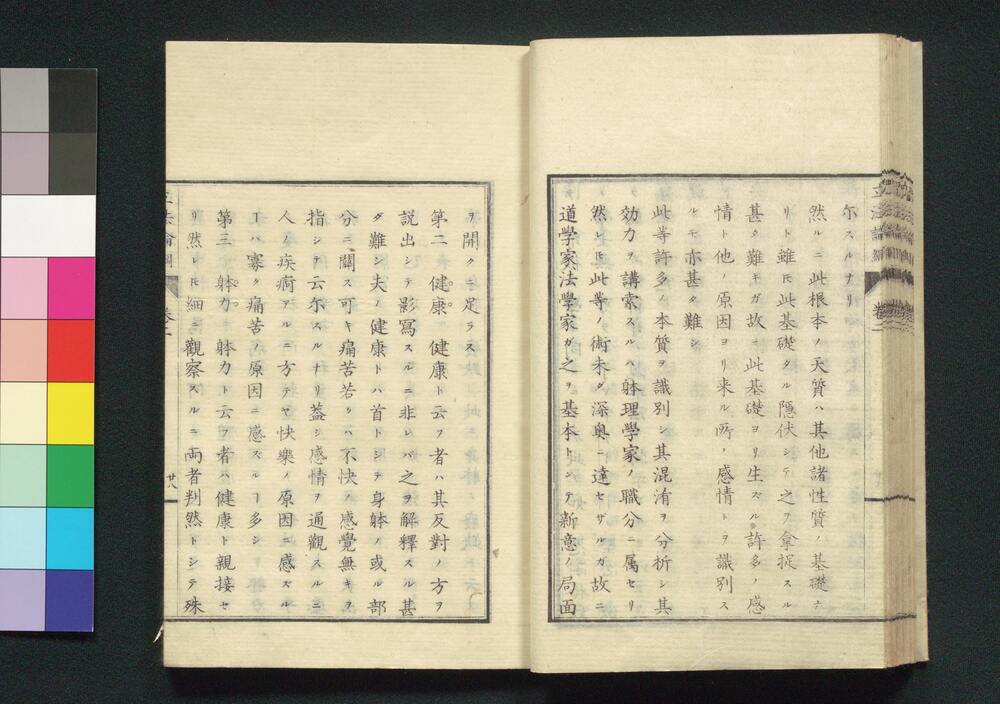 尓スルナリ
然ルニ此根本ノ天質ハ其他諸性質ノ基礎ナ
リト雖𪜈此基礎タル隠伏シテ之ヲ拿捉スル
甚タ難キガ故ニ此基礎ヨリ生ズル許多ノ感
情ト他ノ原因ヨリ来ル所ノ感情トヲ識別ス
ルモ亦甚タ難シ
此等許多ノ本質ヲ識別シ其混淆ヲ分析シ其
効力ヲ講索スルハ躰理學家ノ職分ニ属セリ
然レ𪜈此等ノ術未タ深奥ニ達セザルガ故ニ
道学家法学家ガ之ヲ基本トシテ新意ノ局面
ヲ開クニ足ラス
第二 健康 健康ト云フ者ハ其反對ノ方ヲ
説出シテ影寫スルニ非レバ之ヲ解釋スル甚
ダ難シ夫ノ健康トハ首トシテ身躰ノ或ル部
分ニ關ス可キ痛苦若クハ不快ノ感覺無キヲ
指シテ云尓スルナリ蓋シ感情ヲ通觀スルニ
人ノ疾痾アルニ方テヤ快樂ノ原因ニ感ズル
ヿハ寡ク痛苦ノ原因ニ感ズルヿ多シ
第三 躰力 躰力ト云フ者ハ健康ト親接セ
リ然レ𪜈細ニ觀察スルニ両者判然トシテ殊
卷二
廿八
立法論綱
卷二